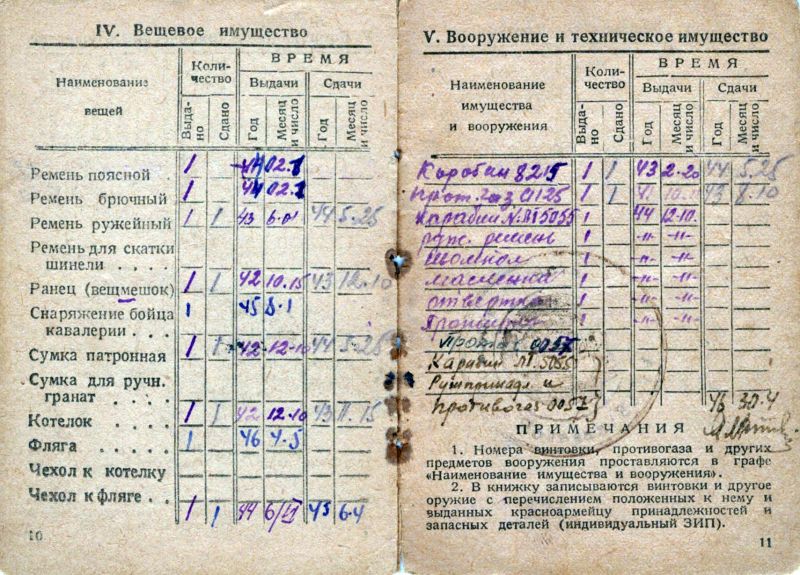 IV. Вещевое имущество
Наименование вещей
Коли-
чество
ВРЕМЯ
Выдачи
Сдачи
Выда-
но
Сдано
Год
Месяц
и число
Год
Месяц
и число
Ремень поясной . 1 44 02.1
Ремень брючный 1 44 02.1
Ремень ружейный 1 1 43 6-01 44 5-25
Ремень для скатки
шинели . . . .
Ранец (вещмешок) 1 1 42 10.15 43 12-10
Снаряжение бойца
кавалерии . . . 1 45 8-1
Сумка патронная 1 1 42 12-10 44 5-25
Сумка для ручн.
гранат . . . .
Котелок . . . 1 1 42 12.10 43 11-15
Фляга . . . . 1 46 4-5
Чехол к котелку
Чехол к фляге . . 1 1 44 45 6-4
10
V. Вооружение и техническое имущество
Наименование
имущества
и вооружения
Коли-
чество
ВРЕМЯ
Выдачи
Сдачи
Выда-
но
Сдано
Год
Месяц
и число
Год
Месяц
и число
Карабин 8215 1 1 43 2-20 44 5.25
Прот. газ 1125 1 1 10-1 43 8-10
Карабин N. 1 44 12-10.
руж. ремень 1 -"- -"-
шомпол 1 -"- -"-
масленка 1 -"- -"-
отвертка 1 -"- -"-
1 -"- -"-
0057
Карабин 5055
и
противогаз 0057 46 30-4
ПРИМЕЧАНИЯ
1. Номера винтовки, противогаза и других
предметов вооружения проставляются в графе
«Наименование имущества и вооружения».
2. В книжку записываются винтовки и другое
оружие с перечислением положенных к нему и
выданных красноармейцу принадлежностей и
запасных деталей (индивидуальный ЗИП).
11